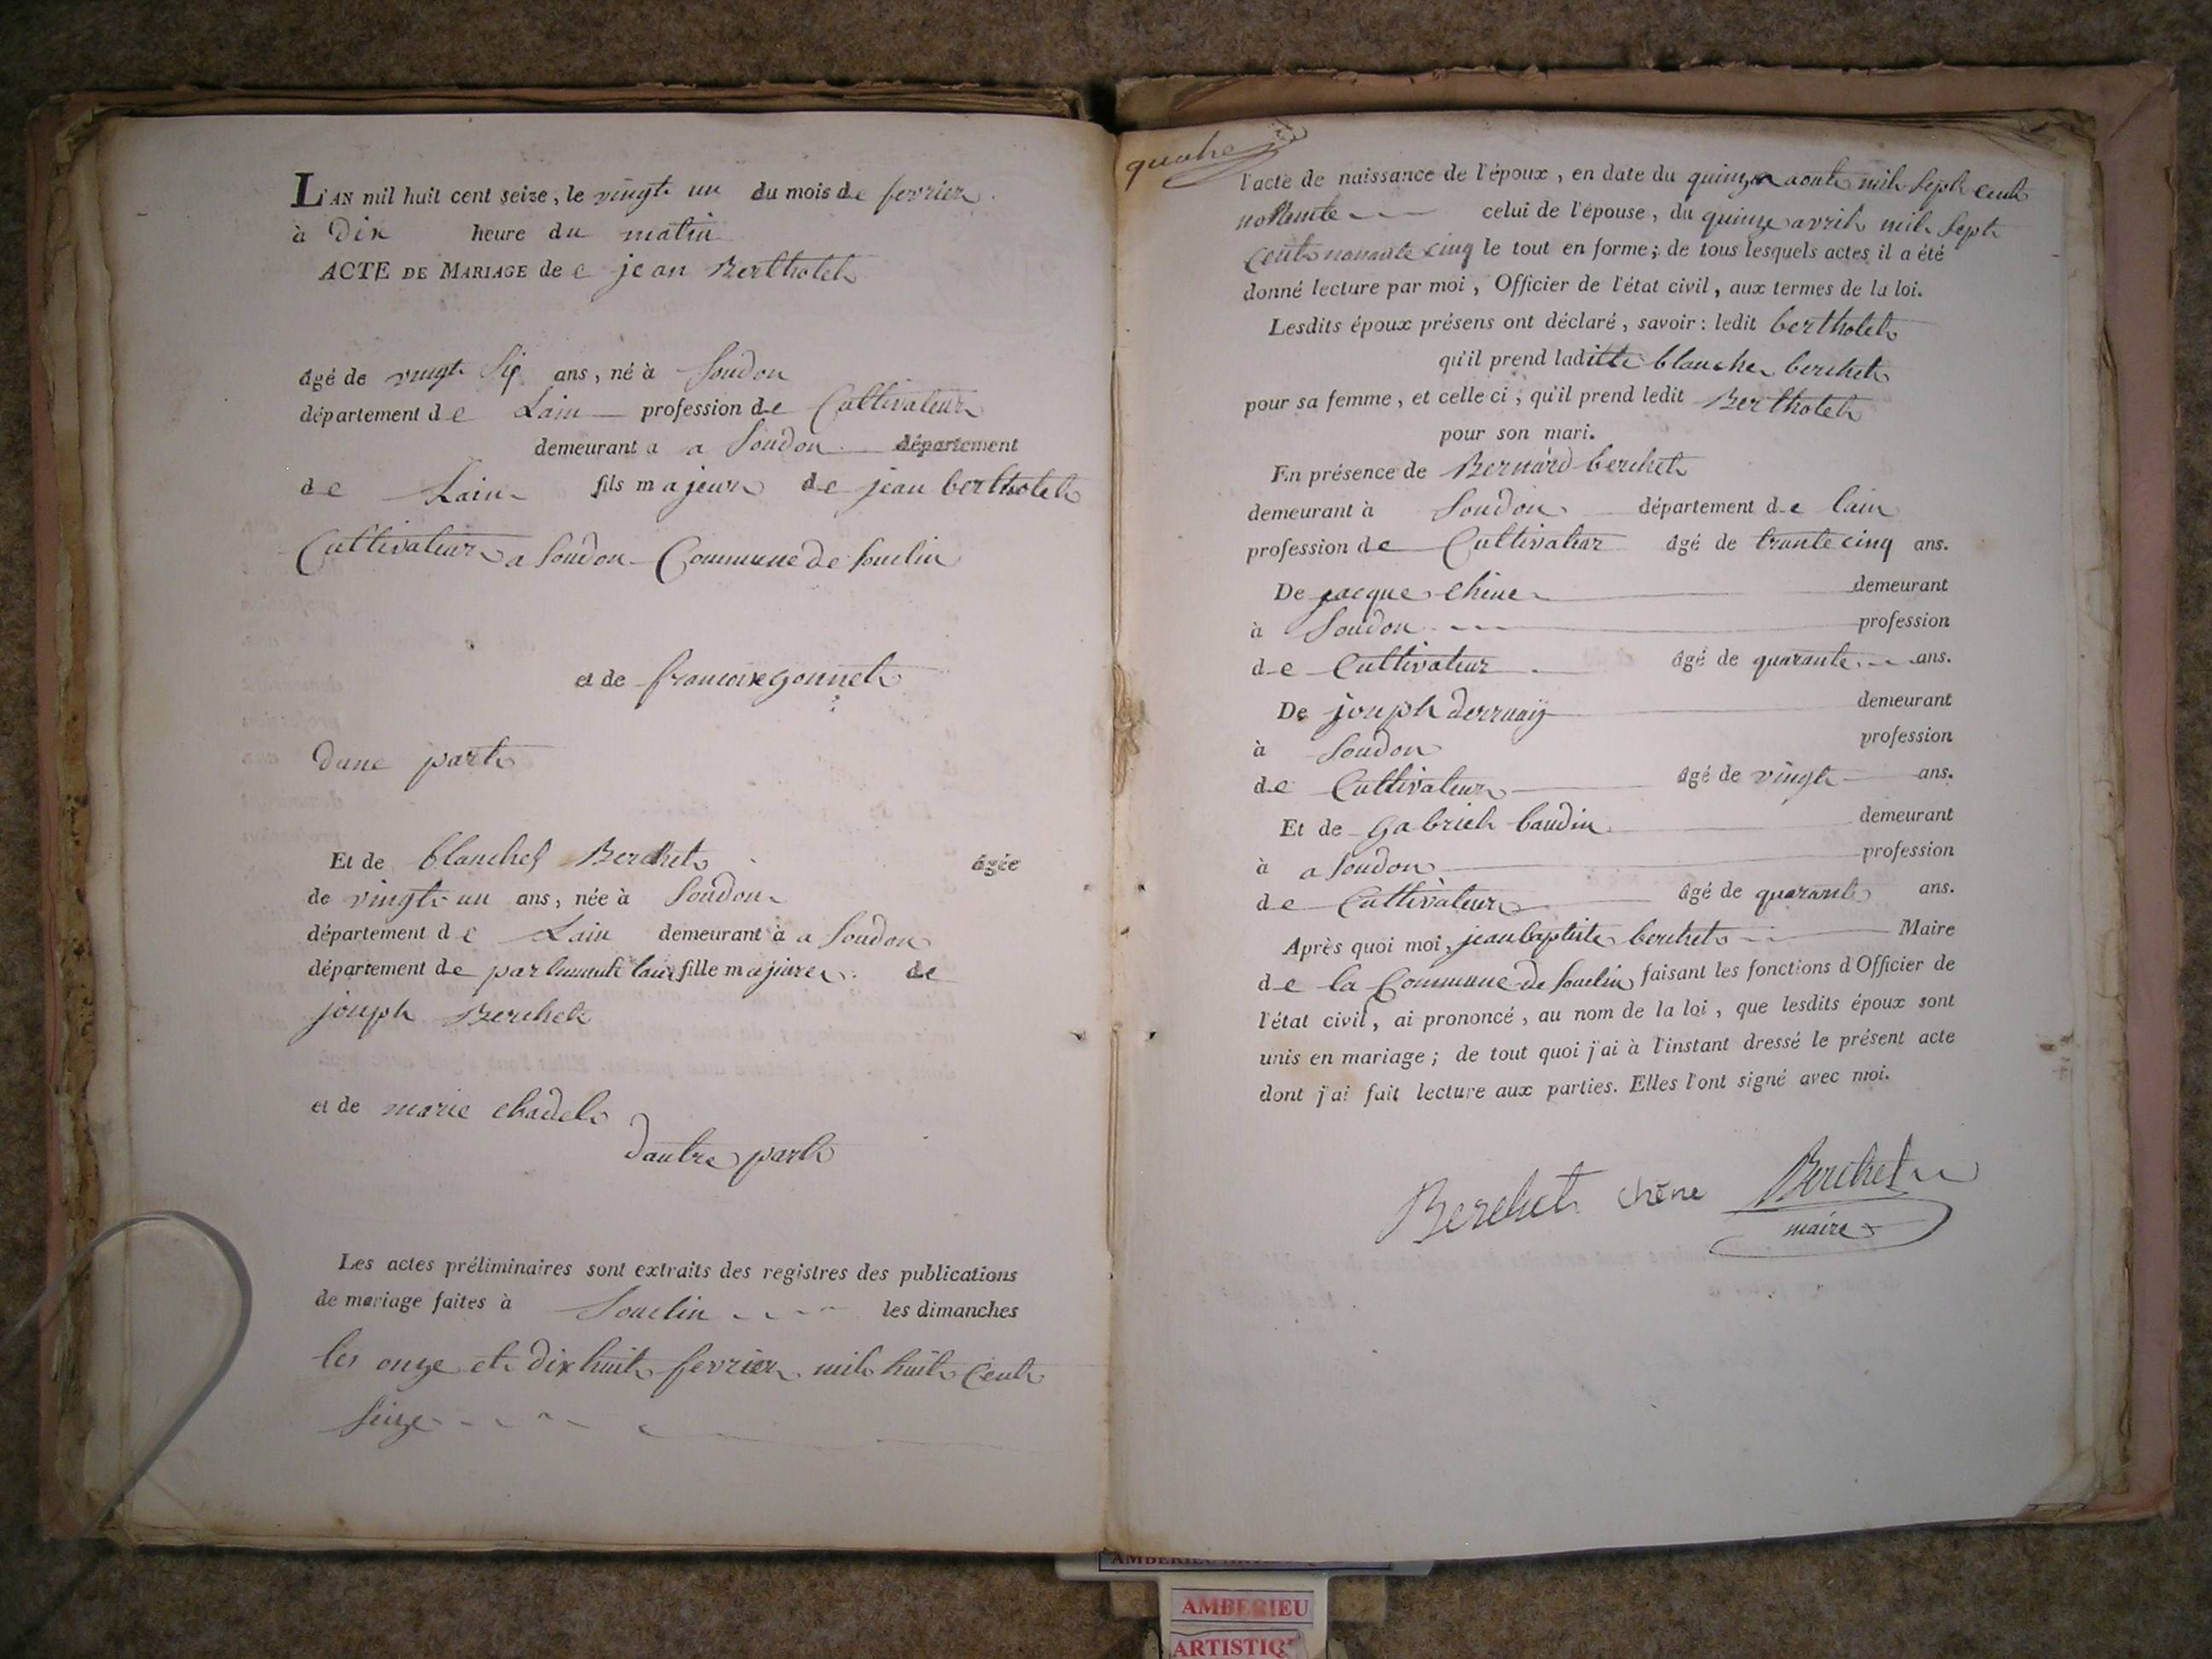 L'AN mil huit cent seize, le vingt un du mois de fevrier
à Dix heure du matin
ACTE DE MARIAGE de e jean Bertholet
âgé de vingt six ans, né à Soudon
département de Lain profession de Cultivateur
demeurant a a Soudon département
de Lain fils majeur de jean bertholet
Cultivateur a Soudon Commune de Souclin
et de francoise gonnet
dune part
Et de blanche Berchet âgée
de vingt un ans, née à Soudon
département de Lain demeurant à a Soudon
département de lain fille majeure de
joseph Berchet
et de marie chadel
dautre part
Les actes préliminaires sont extraits des registres des publications
de mariage faites à Souclin les dimanches
les onze et dix huit fevrier mil huit Cent
seize
quatre
l'acte de naissance de l'époux, en date du quinze aout mil sept cent
nonante celui de l'épouse, du quinze avril mil sept
Cent nonante cinq le tout en forme; de tous lesquels actes il a été
donné lecture par moi, Officier de l'état civil, aux termes de la loi.
Lesdits époux présens ont déclaré, savoir: ledit bertholet
qu'il prend laditte blanche berchet
pour sa femme, et celle ci, qu'il prend ledit Bertholet
pour son mari.
En présence de Bernard berchet
demeurant à Soudon département de lain
profession de Cultivateur âgé de trante cinq ans.
De jacque chene demeurant
à Soudon profession
de Cultivateur âgé de quarante ans.
De joseph demeurant
à Soudon profession
de Cultivateur âgé de vingt ans.
Et de gabriel baudin demeurant
à a Soudon profession
de Cultivateur âgé de quarante ans.
Après quoi moi, jean baptiste berchet Maire
de la Commune de Souclin faisant les fonctions d'Officier de
l'état civil, ai prononcé, au nom de la loi, que lesdits époux sont
unis en mariage; de tout quoi j'ai à l'instant dressé le présent acte
dont j'ai fait lecture aux parties. Elles l'ont signé avec moi.
Berchet chêne Berchet
maire
AMBERIEU
AMBERIEU
ARTISTIQ